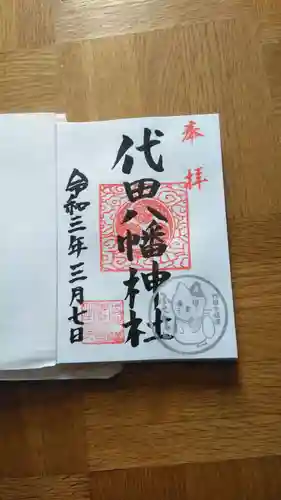 奉拝
代田八幡神社
令和三年三月七日